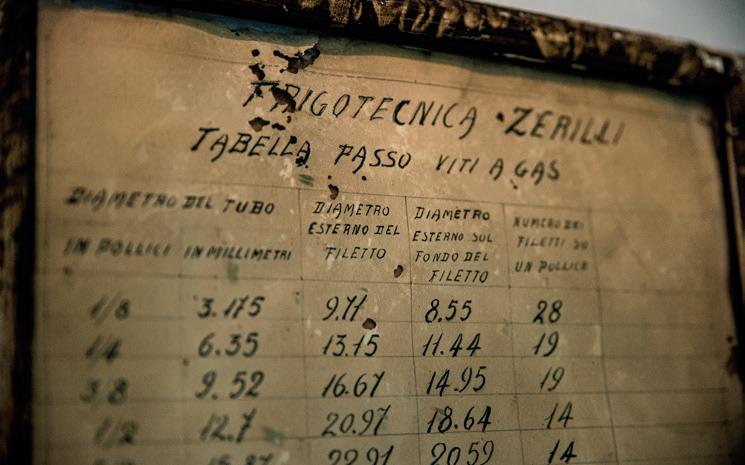 FRIGOTECNICA ZERILLI
TABELLA PASSO VITI A GAS
DIAMETRO DEL TUBO
IN POLLICI IN MILLIMETRI
DIAMETRO
ESTERNO DEL
FILETTO
DIAMETRO
ESTERNO SUL
FONDO DEL
FILETTO
NUMERO DEI
FILETTI SU
UN POLLICE
1/8 3.175 9.71 8.55 28
1/4 6.35 13.15 11.44 19
3/8 9.52 16.67 14.95 19
1/2 12.7 20.97 18.64 14
22.91 20.59 14